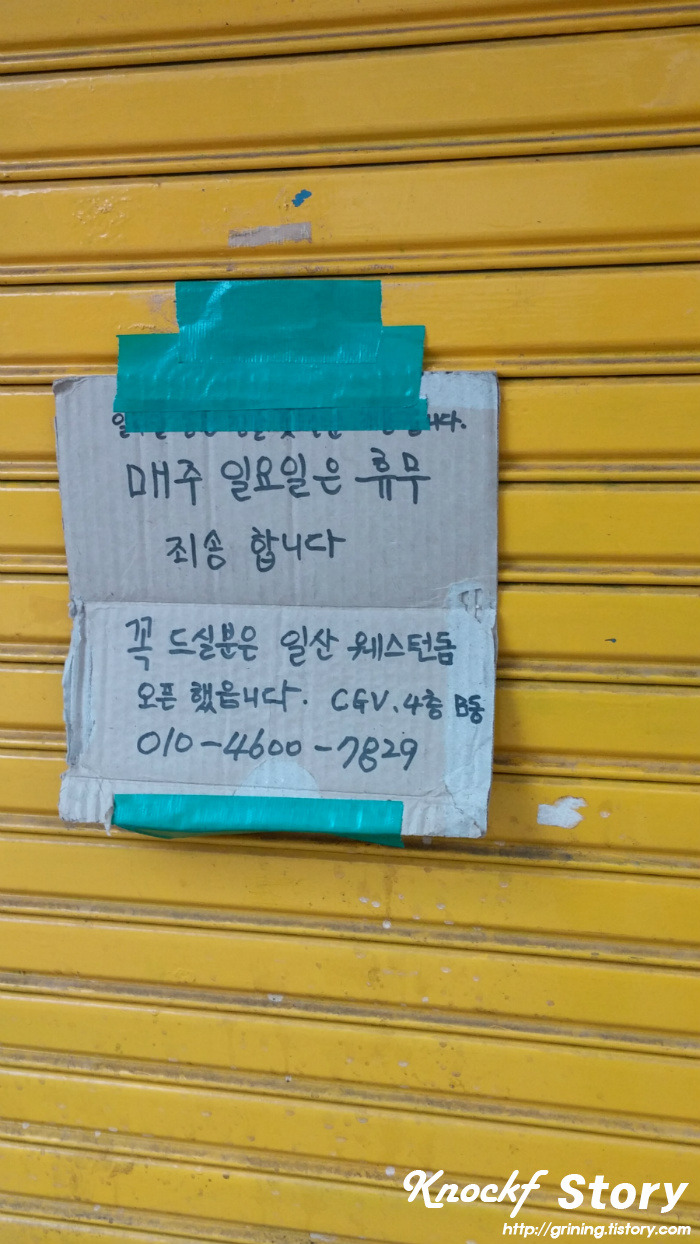 매주 일요일은 휴무
죄송 합니다
꼭 드실분은 일산 웨스턴돔
오픈 했읍니다. CGV. 4층 B동
010-4600-7829
Knockf Story
http://grining.tistory.com